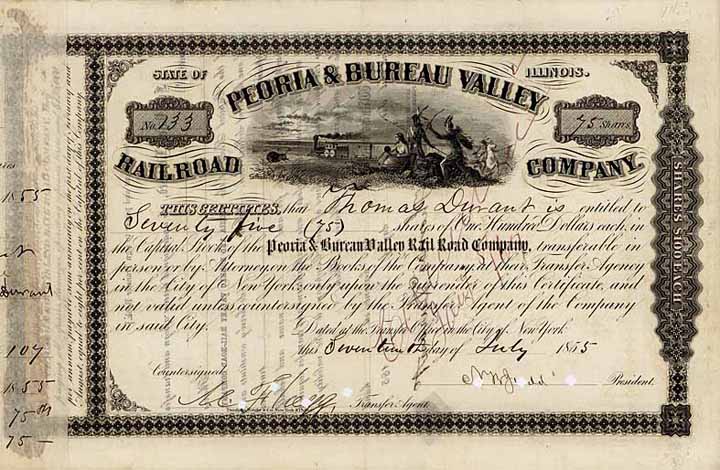 STATE OF ILLINOIS.
PEORIA & BUREAU VALLEY
No. 133
75 Shares
RAILROAD COMPANY.
THIS CERTIFIES, that Thomas Durant is entitled to
Seventy five (75) shares of One Hundred Dollars each, in
the Capital Stock of the Peoria & Bureau Valley Rail Road Company, transferable in
person or by Attorney, on the Books of the Company, at their Transfer Agency
in the City of New York, only upon the surrender of this Certificate, and
not valid unless countersigned by the Transfer Agent of the Company
in said City.
Dated at the Transfer Office in the City of New York
this Seventeenth day of July 1855
Countersigned
N B Judd President.
Transfer Agent.
SHARES $100 EACH
1855
Durant
107
1855
75
75 —